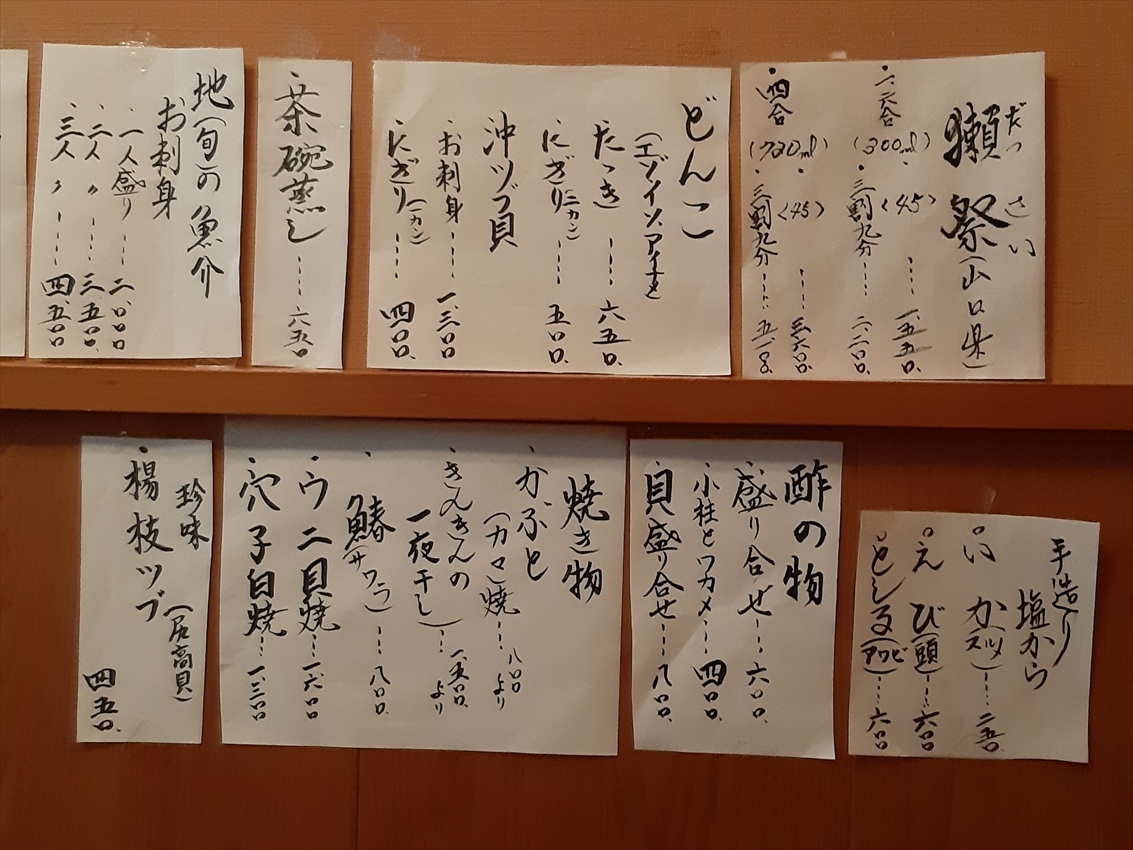 獺祭(山口県)
だっさい
・一、六合(300ml)
・〈45〉……一、五五〇
・三割九分……二、一〇〇
・四合(720ml)
・〈45〉……三、六〇〇
・三割九分……五、一〇〇
どんこ
(エゾイソアイナメ)
たゝき……六五〇
にぎり(二カン)……五〇〇
沖ツブ貝
お刺身……一、三〇〇
にぎり(一カン)……四〇〇
・茶碗蒸し……六五〇
地(旬)の魚介
お刺身
・一人盛り……二、〇〇〇
・二人〃……三、五〇〇
・三人〃……四、五〇〇
手造り
塩から
いか(スルメ)……二五〇
えび(頭)……六〇〇
としる(アワビ)……六〇〇
酢の物
・盛り合せ……六〇〇
・小柱とワカメ……四〇〇
・貝盛り合せ……八〇〇
焼き物
・かぶと
(カマ)焼……八〇〇より
・きんきんの
一夜干し)……一、五〇〇より
・鰆(サワラ)……八〇〇
・ウニ貝焼……一、六〇〇
・穴子白焼……一、三〇〇
珍味
・楊枝ツブ
四五〇